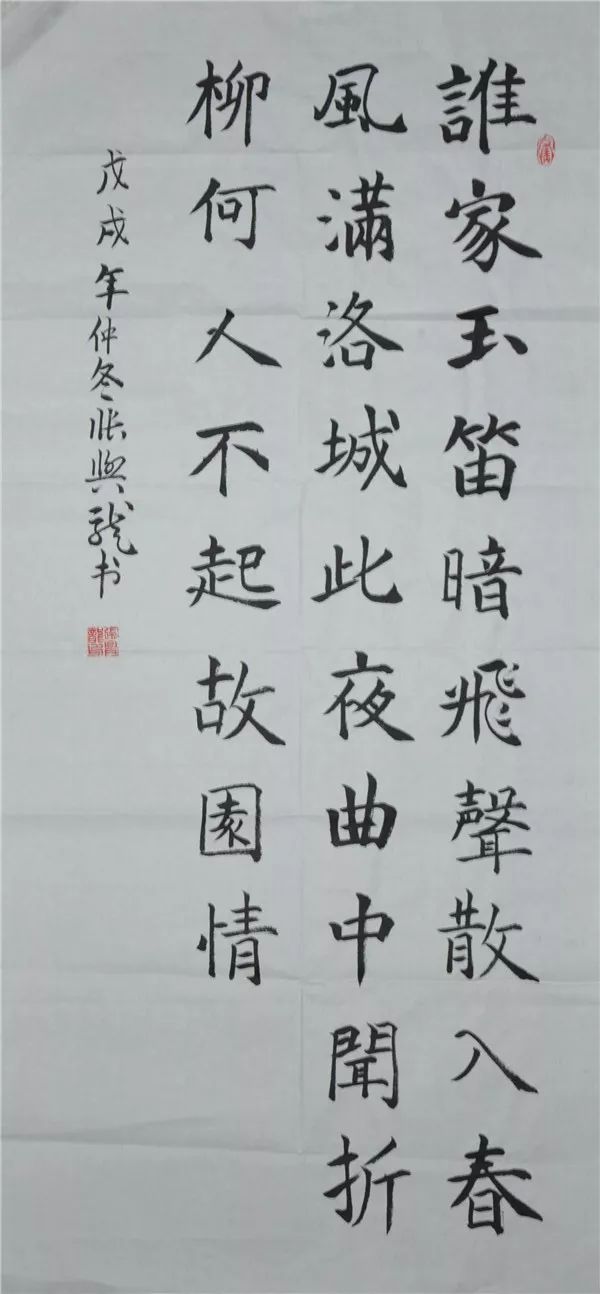 誰家玉笛暗飛聲散入春
風滿洛城此夜曲中聞折
柳何人不起故園情
戊戌年仲冬张興龍书